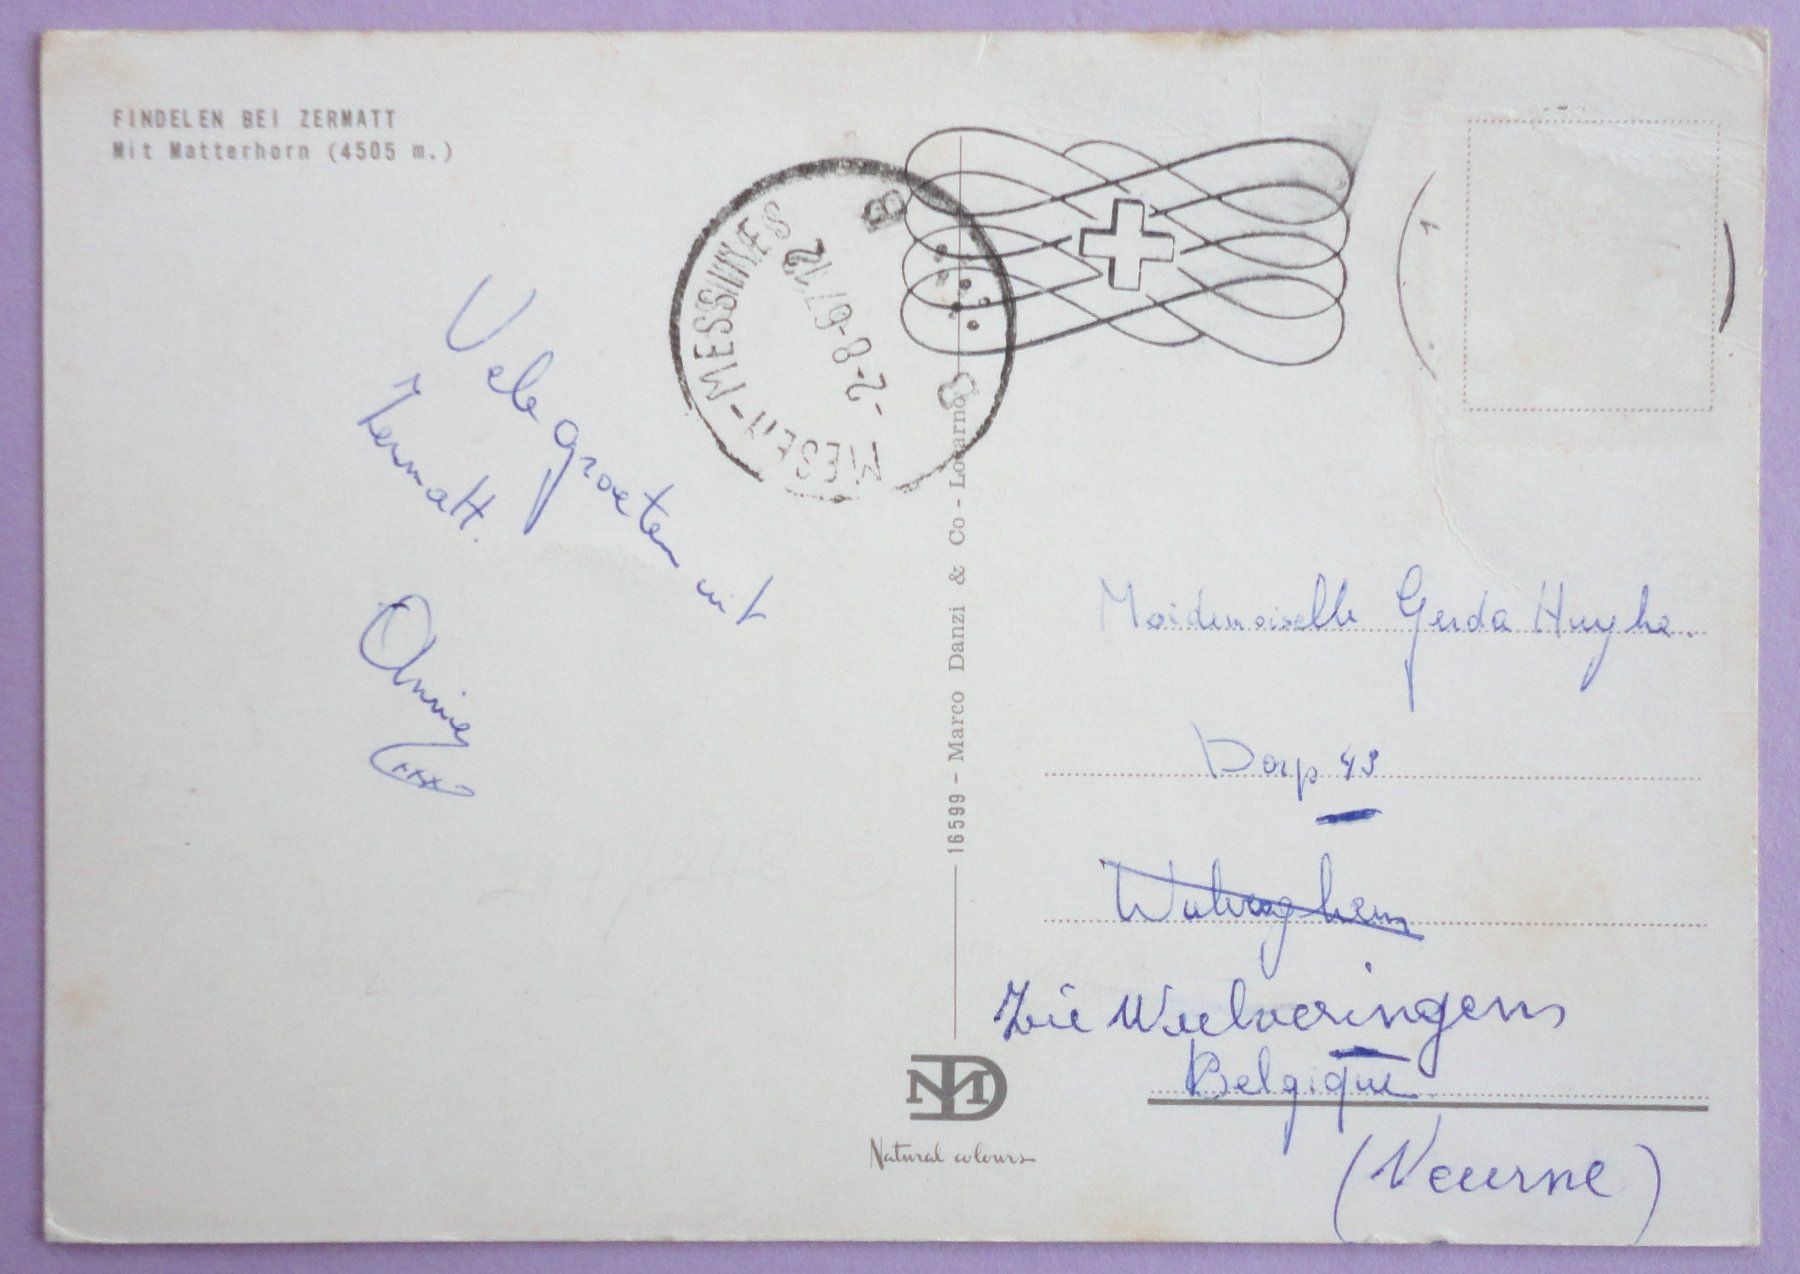 FINDELEN BEI ZERMATT
Mit Matterhorn (4505 m.)
MESEN-MESSINES
2-8-67 12
B
B
1
Vele groeten uit
Zermatt.
Annie
xxxx
16599 - Marco Danzi & Co - Locarno
MD
Natural colours
Moidemoiselle Gerda Huyghe.
Dorp 43
Wulveringhem
Zie Wulveringem
Belgique
(Veurne)